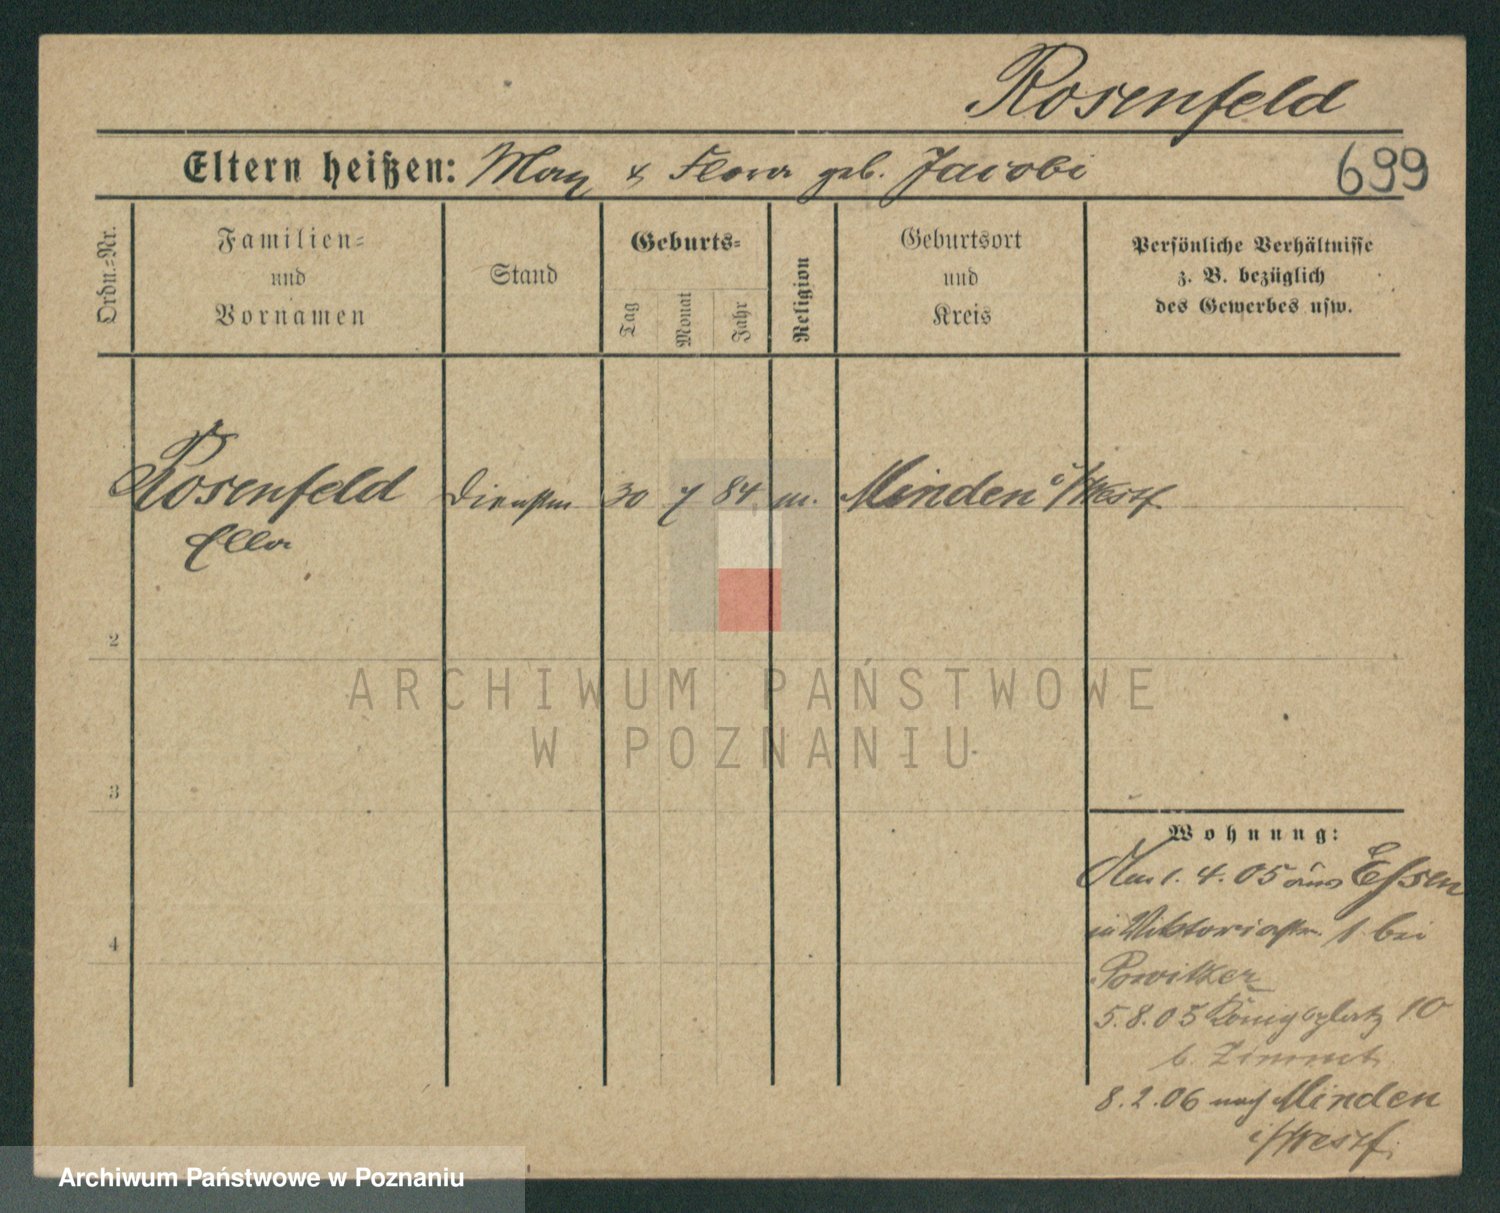 Rosenfeld
Eltern heißen: Max & Flora geb. Jacobi
699
Ordn.-Nr.
Familien-
und
Vornamen
Stand
Geburts-
Tag
Monat
Jahr
Religion
Geburtsort
und
Kreis
Persönliche Verhältnisse
z. B. bezüglich
des Gewerbes usw.
Rosenfeld 30 7 84 m. Minden i/Westf.
Ella
2
3
4
Wohnung:
Am 1. 4. 05 aus Essen
in Viktoriastr. 1 bei
5.8.05 Königsplatz 10
b.
8.2.06 nach Minden
i/Westf.
ARCHIWUM PAŃSTWOWE
W POZNANIU
Archiwum Państwowe w Poznaniu